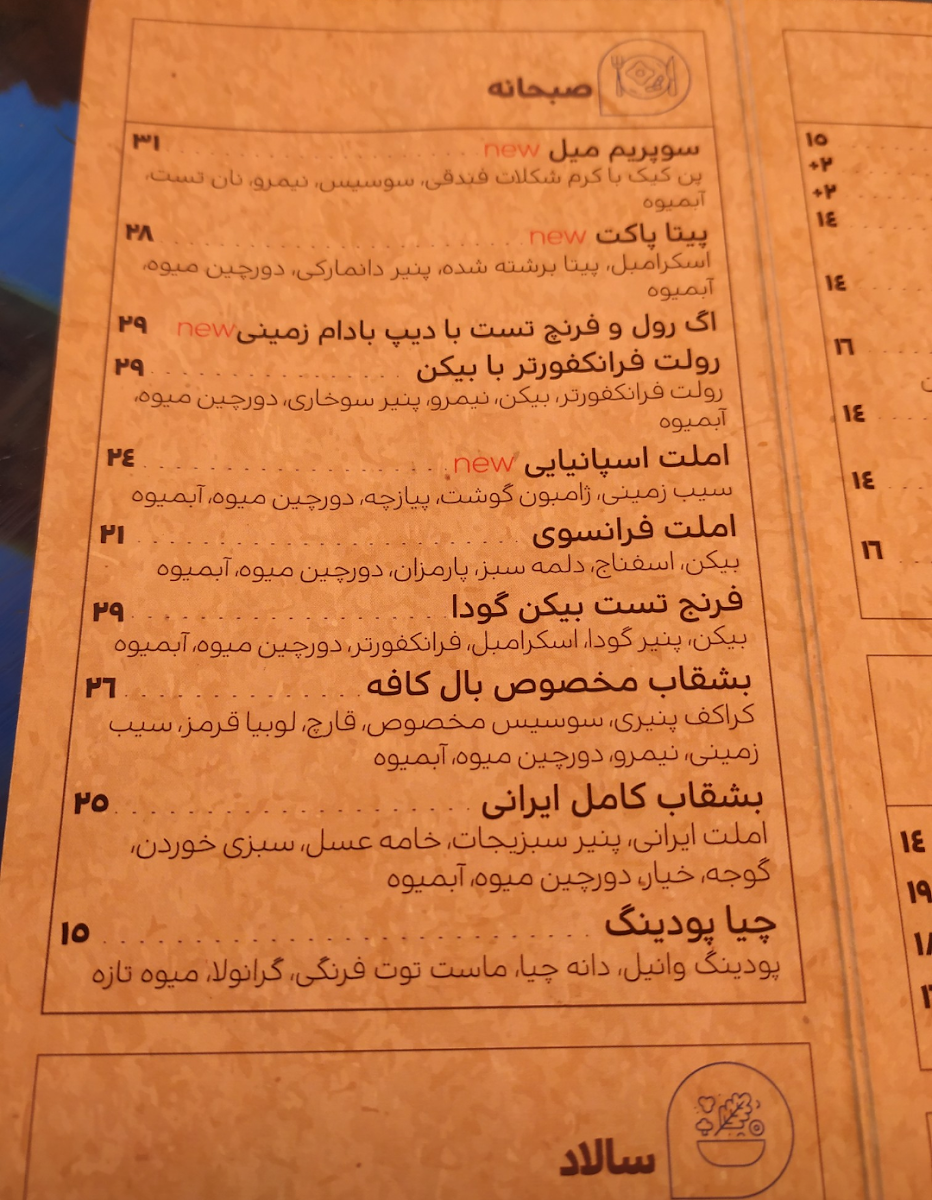 صبحانه
سوپریم میل new ۳۱
پن کیک با کرم شکلات فندقی، سوسیس، نیمرو، نان تست،
آبمیوه
پیتا پاکت new ۲۸
اسکرامبل، پیتا برشته شده، پنیر دانمارکی، دورچین میوه،
آبمیوه
اگ رول و فرنچ تست با دیپ بادام زمینی new ۲۹
رولت فرانکفورتر با بیکن ۲۹
رولت فرانکفورتر، بیکن، نیمرو، پنیر سوخاری، دورچین میوه،
آبمیوه
املت اسپانیایی new ۲٤
سیب زمینی، ژامبون گوشت، پیازچه، دورچین میوه، آبمیوه
املت فرانسوی ۲۱
بیکن، اسفناج، دلمه سبز، پارمزان، دورچین میوه، آبمیوه
فرنچ تست بیکن گودا ۲۹
بیکن، پنیر گودا، اسکرامبل، فرانکفورتر، دورچین میوه، آبمیوه
بشقاب مخصوص بال کافه ۲٦
کراکف پنیری، سوسیس مخصوص، قارچ، لوبیا قرمز، سیب
زمینی، نیمرو، دورچین میوه، آبمیوه
بشقاب کامل ایرانی ۲۵
املت ایرانی، پنیر سبزیجات، خامه عسل، سبزی خوردن،
گوجه، خیار، دورچین میوه، آبمیوه
چیا پودینگ ۱۵
پودینگ وانیل، دانه چیا، ماست توت فرنگی، گرانولا، میوه تازه
سالاد
۱۵
+۲
+۲
۱٤
۱٤
۱٦
۱٤
۱٤
۱٦
۱٤
۱۹